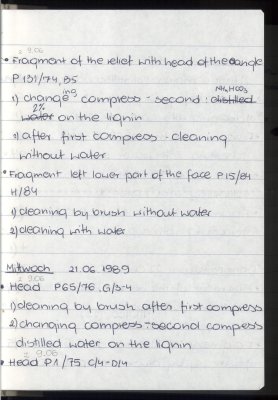 ± 9.06
• Fragment of the relief with head of the candle
P 131/74, B5
NH₄HCO₃
1) changeing compress - second : distilled
2%
water on the lignin
2) after first compress - cleaning
without water
• Fragment left lower part of the face P 15/84
H/84
1) cleaning by brush without water
2) cleaning with water
Mittwoch 21.06 1989
± 9.06
• Head P65/76, G/3-4
1) cleaning by brush after first compress
2) changing compress - second compess
distilled water on the lignin
± 9.06
• Head P1/75, C/4-D/4